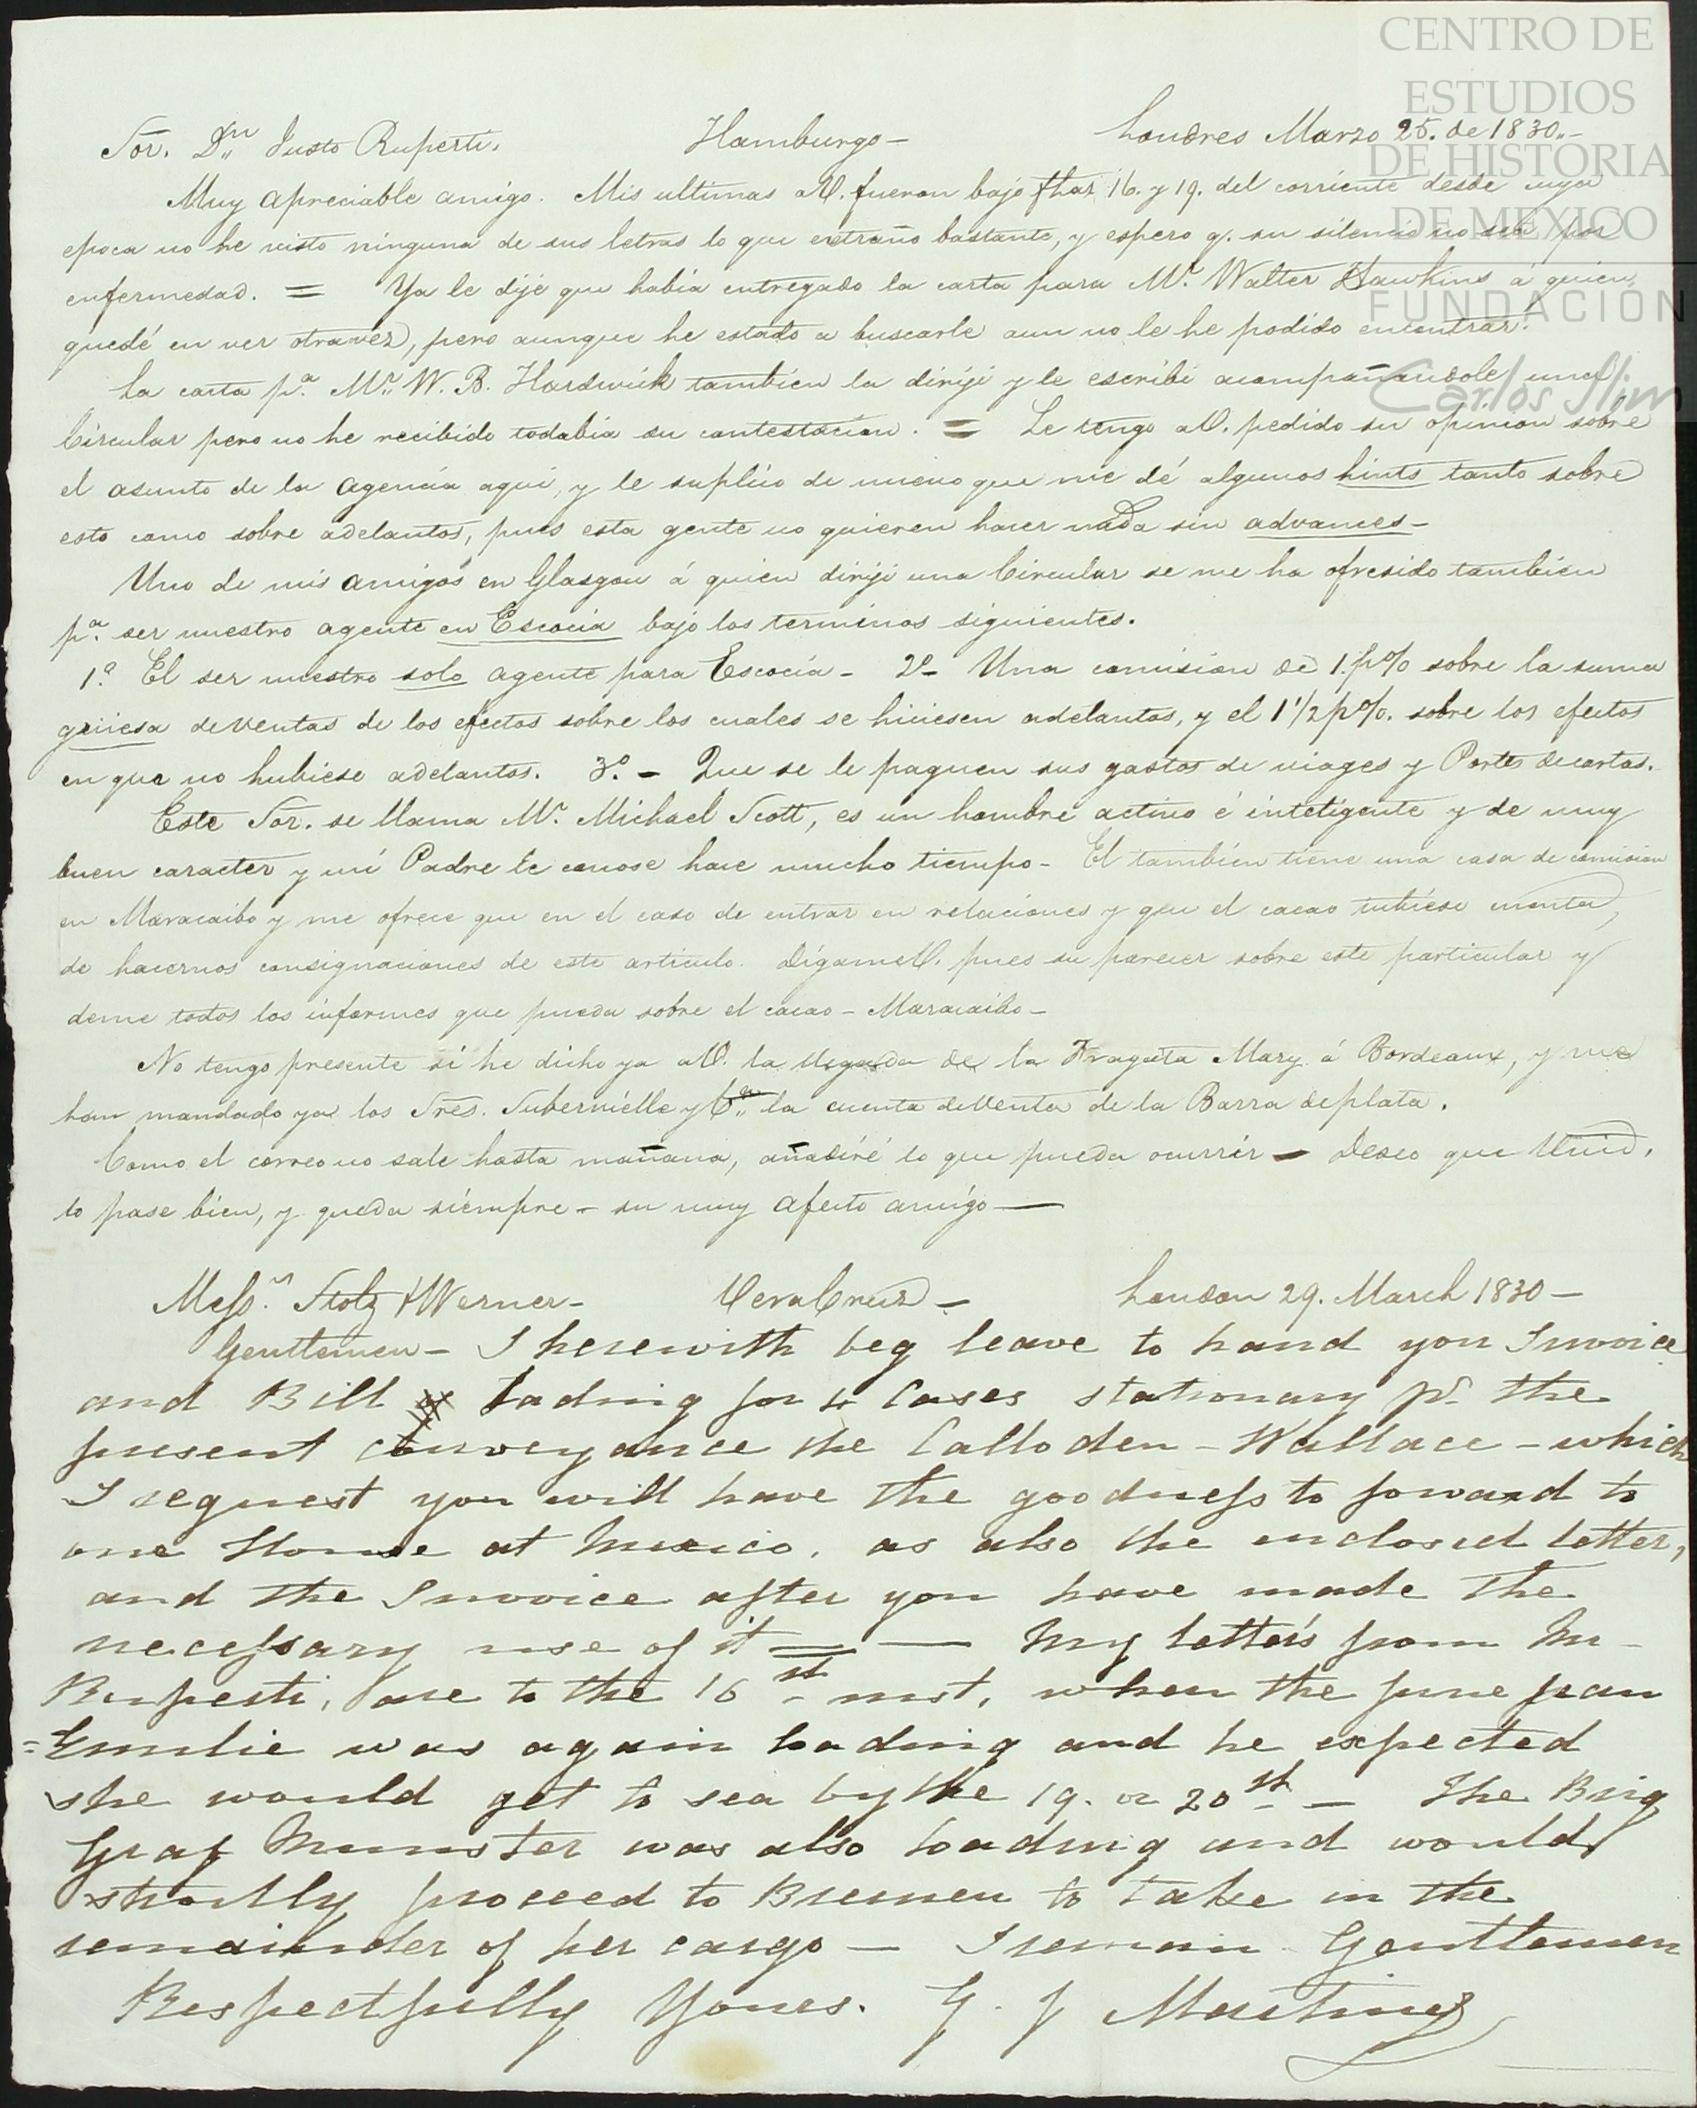 CENTRO DE
ESTUDIOS
DE HISTORIA
DE MEXICO
FUNDACIÓN
Carlos Slim
Sor. Dn. Justo Ruperti. Hamburgo — Londres Marzo 25. de 1830.—
Muy apreciable amigo. Mis ultimas a V. fueron bajo fhas 16. y 19. del corriente desde cuya
epoca no he visto ninguna de sus letras lo que extraño bastante, y espero q. su silencio no sea por
enfermedad. = Ya le dije que habia entregado la carta para Mr. Walter Hawkins á quien
quedé en ver otravez, pero aunque he estado a buscarle aun no le he podido encontrar.
La carta pa. Mr. W. B. Hardwick tambien la diriji y le escribi acompañandole una
Circular pero no he recibido todabia su contestacion. = Le tengo a V. pedido su opinion sobre
el asunto de la agencia aqui, y le suplico de nuevo que me dé algunos hints tanto sobre
esto como sobre adelantos, pues esta gente no quieren hacer nada sin advances —
Uno de mis amigos en Glasgow á quien diriji una Circular se me ha ofresido tambien
pa. ser nuestro agente en Escocia bajo los terminos siguientes.
1o. El ser nuestro solo agente para Escocia — 2o— Una comision de 1. p% sobre la suma
grüesa de ventas de los efectos sobre los cuales se hiciesen adelantos, y el 1 1/2 p%. sobre los efectos
en que no hubiese adelantos. 3o. — Que se le paguen sus gastos de viages y Portes de cartas.
Este Sor. se llama Mr. Michael Scott, es un hombre activo é inteligente y de muy
buen caracter y mi Padre le conose hace mucho tiempo — El tambien tiene una casa de comision
en Maracaibo y me ofrece que en el caso de entrar en relaciones y que el cacao tubiese cuenta,
de hacernos consignaciones de este articulo. Digame V. pues su parecer sobre este particular y
deme todos los informes que pueda sobre el cacao — Maracaibo —
No tengo presente si he dicho ya a V. la llegada de la Fragata Mary á Bordeaux, y me
han mandado ya los Sres. Subervielle y Ca. la cuenta de Venta de la Barra de plata.
Como el correo no sale hasta mañana, añadiré lo que pueda ocurrir — Deseo que Umd.
lo pase bien, y queda siempre — su muy afecto amigo —
Messrs. Stolz & Werner — Vera Cruz — London 29. March 1830 —
Gentlemen — I herewith beg leave to hand you Invoice
and Bill of Lading for 4 Cases stationary pr. the
present conveyance the Calloden — Wallace — which
I request you will have the goodness to forward to
our House at Mexico, as also the enclosed letter,
and the Invoice after you have made the
necessary use of it = — My letters from Mr
Ruperti, are to the 16st inst, when the June frau
= Emilie was again loading and he expected
she would get to sea by the 19. or 20st — The Brig
Graf Munster was also loading and would
shortly proceed to Bremen to take in the
remainder of her cargo — I remain Gentlemen
Respectfully Yours. G. J Martinez